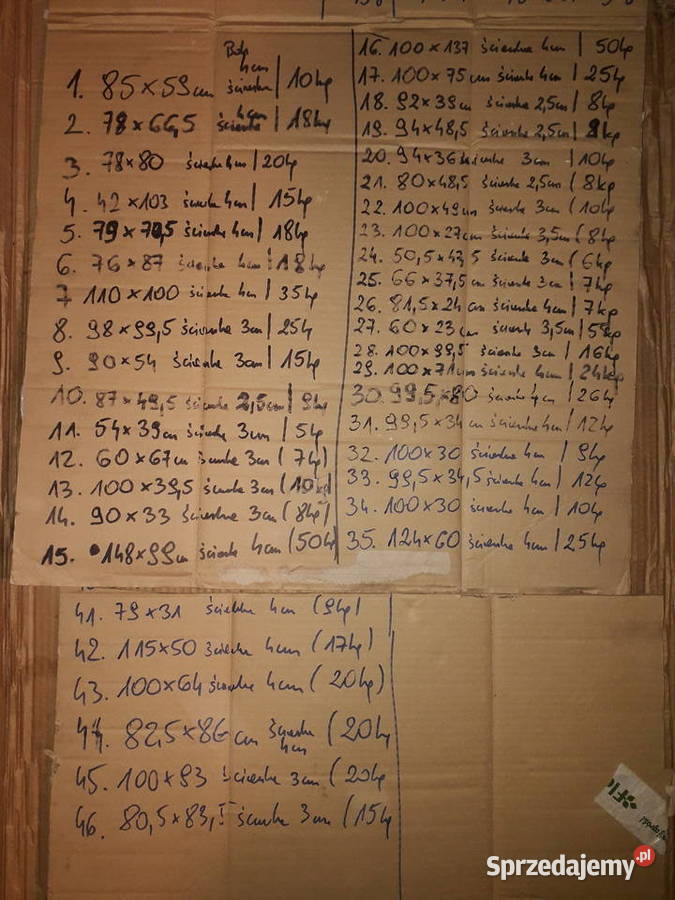 1. 85×59cm ścianka 4cm | 10kg
2. 78×66,5 ścianka 4cm | 18kg
3. 78×80 ścianka 4cm | 20kg
4. 42×103 ścianka 4cm | 15kg
5. 79×70,5 ścianka 4cm | 18kg
6. 76×87 ścianka 4cm | 18kg
7 110×100 ścianka 4cm | 35kg
8. 98×99,5 ścianka 3cm | 25kg
9. 90×54 ścianka 3cm | 15kg
10. 87×49,5 ścianka 2,5cm | 9kg
11. 54×39cm ścianka 3cm | 5kg
12. 60×67cm ścianka 3cm (7kg)
13. 100×39,5 ścianka 3cm (10kg)
14. 90×33 ścianka 3cm (8kg)
15. 148×99cm ścianka 4cm (50kg)
16. 100×137 ścianka 4cm | 50kg
17. 100×75cm ścianka 4cm | 25kg
18. 92×39cm ścianka 2,5cm | 8kg
19. 94×48,5 ścianka 2,5cm | kg
20. 94×36 ścianka 3cm | 10kg
21. 80×48,5 ścianka 2,5cm (8kg
22. 100×49cm ścianka 3cm (10kg
23. 100×27cm ścianka 3,5cm (8kg
24. 50,5×47,5 ścianka 3cm (6kg
25. 66×37,5cm ścianka 3cm | 7kg
26. 81,5×24cm ścianka 4cm | 7kg
27. 60×23cm ścianka 3,5cm | 5kg
28. 100×99,5 ścianka 3cm | 16kg
29. 100×71cm ścianka 4cm | 24kg
30. 99,5×80 ścianka 4cm | 26kg
31. 99,5×34cm ścianka 4cm | 12kg
32. 100×30 ścianka 4cm | 9kg
33. 99,5×34,5 ścianka 4cm | 12kg
34. 100×30 ścianka 4cm | 10kg
35. 124×60 ścianka 4cm | 25kg
41. 79×31 ścianka 4cm (9kg)
42. 115×50 ścianka 4cm (17kg)
43. 100×64 ścianka 4cm (20kg)
44. 82,5×86cm ścianka 4cm (20kg
45. 100×93 ścianka 3cm (20kg
46. 80,5×83,5 ścianka 3cm (15kg
Sprzedajemy.pl